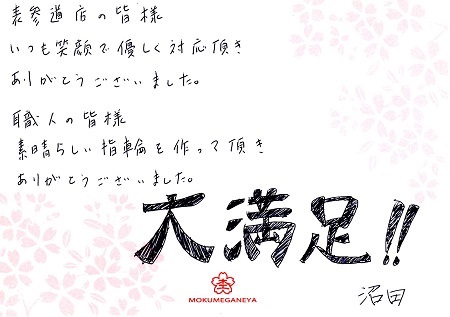 表参道店の皆様
いつも笑顔で優しく対応頂き
ありがとうございました。
職人の皆様
素晴らしい指輪を作って頂き
ありがとうございました。
大満足!!
MOKUMEGANEYA
沼田